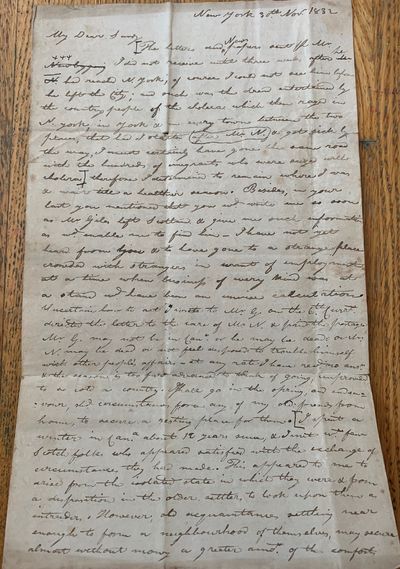 New York 30th Nov. 1832
My Dear Sandy
The letters and News papers sent pr Mr
I did not receive until three weeks after
he had reached N. York, of course I could not see him before
he left the City, and such was the dread entertained by
the country people of the cholera which then raged in
N. york in york & in every town between the two
places, that had I started after Mr N. & got sick by
the way, I must certainly have gone the same road
with the hundreds of emigrants who were and with
cholera] therefore I determined to remain where I was
till a healthier season. Besides, in your
last you mentioned that you would write me as soon
as Mr Giles left Scotland & give me such information
as would enable me to find him - I have not yet
heard from you & to have gone to a strange place
crowded with strangers in want of employment
at a time when business of every kind was at
a stand would have been an unwise calculation
Uncertain how to act I wrote to Mr G. on the 6th Curr.
directed the letter to the care of Mr N. & paid the postage
Mr G. may not be in Can. or he may be dead, or Mr
N. may be dead or not feel disposed to trouble himself
with other people's affairs at any rate I have recd no ansr
& the season is too far advanced to think of going
to a country. I shall go in the spring, and endea
vour, should circumstances force any of my old friends from
home, to secure a resting place for them. [I spent a
winter in Can. about 12 years since, & met wt few
Scotch folks who appeared satisfied with the exchange of
circumstances they had made. This appeared to me to
arise from the isolated state in which they were & from
a disposition in the older settler, to look upon them as
intruders. However, old acquaintances settling near
enough to form a neighbourhood of themselves, may secure
almost without money a greater amt. of the comforts